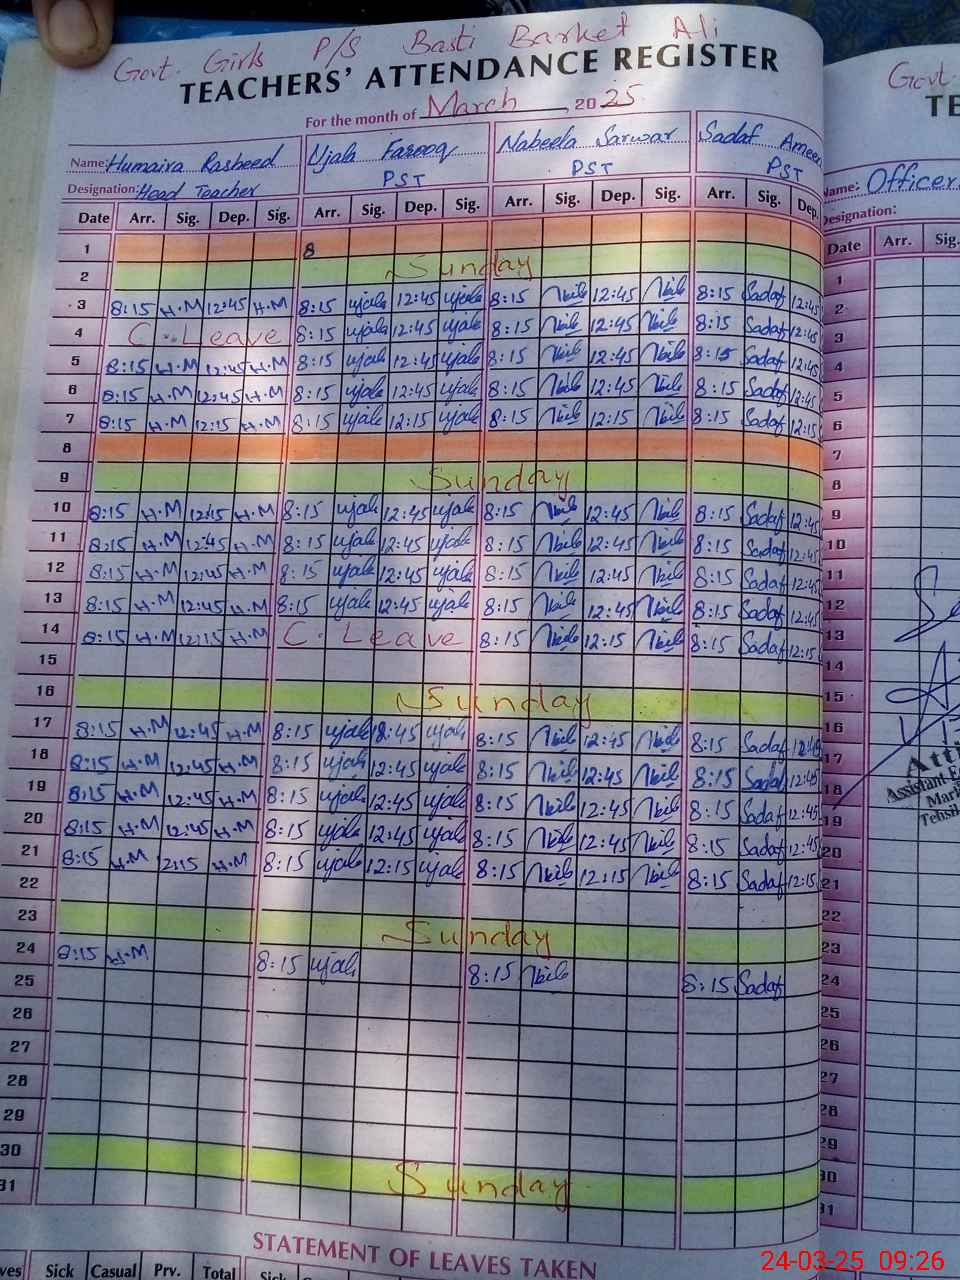 Govt. Girls P/S Basti Barket Ali
TEACHERS' ATTENDANCE REGISTER
For the month of March, 2025
Name: Humaira Rasheed Ujala Farooq Nabeela Sarwar Sadaf Ameen
Designation: Head Teacher PST PST PST
Date Arr. Sig. Dep. Sig. Arr. Sig. Dep. Sig. Arr. Sig. Dep. Sig. Arr. Sig. Dep.
1 8
2 Sunday
3 8:15 H.M 12:45 H.M 8:15 ujala 12:45 ujala 8:15 12:45 8:15 Sadaf 12:45
4 C. Leave 8:15 ujala 12:45 ujala 8:15 12:45 8:15 Sadaf 12:45
5 8:15 H.M 12:45 H.M 8:15 ujala 12:45 ujala 8:15 12:45 8:15 Sadaf 12:45
6 8:15 H.M 12:45 H.M 8:15 ujala 12:45 ujala 8:15 12:45 8:15 Sadaf 12:45
7 8:15 H.M 12:15 H.M 8:15 ujala 12:15 ujala 8:15 12:15 8:15 Sadaf 12:15
8
9 Sunday
10 8:15 H.M H.M 8:15 ujala 12:45 ujala 8:15 12:45 8:15 Sadaf 12:45
11 8:15 H.M 12:45 H.M 8:15 ujala 12:45 ujala 8:15 12:45 8:15 Sadaf 12:45
12 8:15 H.M 12:45 H.M 8:15 ujala 12:45 ujala 8:15 12:45 8:15 Sadaf 12:45
13 8:15 H.M 12:45 H.M 8:15 ujala 12:45 ujala 8:15 12:45 8:15 Sadaf 12:45
14 8:15 H.M 12:15 H.M C. Leave 8:15 12:15 8:15 Sadaf 12:15
15
16 Sunday
17 8:15 H.M 12:45 H.M 8:15 ujala 12:45 ujala 8:15 12:45 8:15 Sadaf 12:45
18 8:15 H.M 12:45 H.M 8:15 ujala 12:45 ujala 8:15 12:45 8:15 Sadaf 12:45
19 8:15 H.M 12:45 H.M 8:15 ujala 12:45 ujala 8:15 12:45 8:15 Sadaf 12:45
20 8:15 H.M 12:45 H.M 8:15 ujala 12:45 ujala 8:15 12:45 8:15 Sadaf 12:45
21 8:15 H.M 12:15 H.M 8:15 ujala 12:15 ujala 8:15 12:15 8:15 Sadaf 12:15
22
23 Sunday
24 8:15 H.M 8:15 ujala 8:15 8:15 Sadaf
25
26
27
28
29
30 Sunday
31
STATEMENT OF LEAVES TAKEN
ves Sick Casual Prv. Total Sick
Govt.
TE
Name: Officer
Designation:
Date Arr. Sig.
1
2
3
4
5
6
7
8
9
10
11
12
13
14
15
16
17
18
19
20
21
22
23
24
25
26
27
28
29
30
31
Att
Assistant E
Mark
Tehsil
24-03-25 09:26